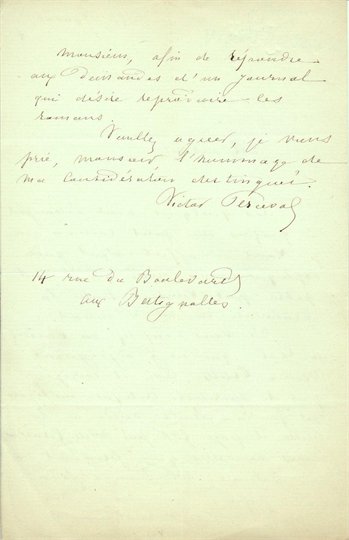 Monsieur, afin de répondre
aux demandes d'un journal
qui désire reproduire les
romans.
Veuillez agréer, je vous
prie, monsieur l'hommage de
ma considération distinguée.
Victor Perceval
14 rue du Boulevard
aux Batignolles.